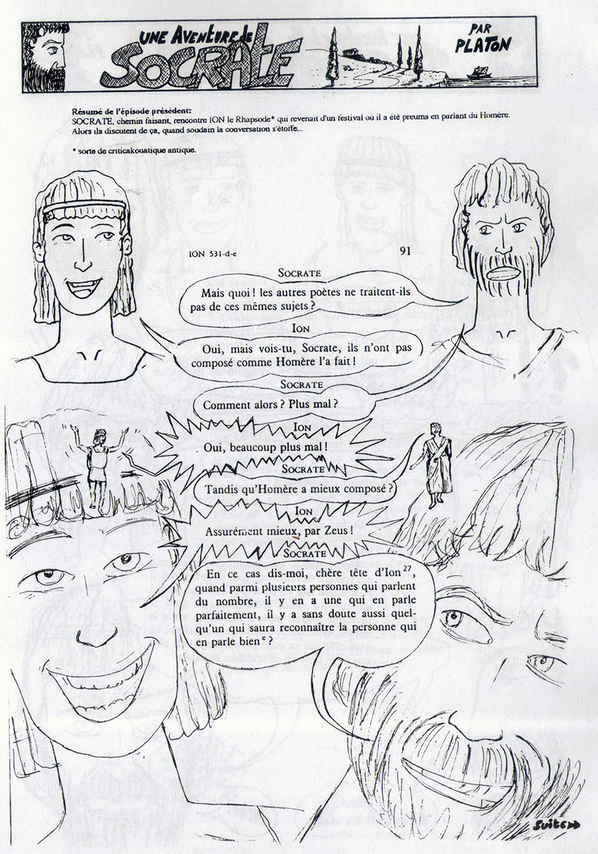 UNE AVENTURE de
SOCRATE
PAR
PLATON
Résumé de l'épisode présédent:
SOCRATE, chemin faisant, rencontre ION le Rhapsode* qui revenait d'un festival où il a été preums en parlant du Homère.
Alors ils discutent de ça, quand soudain la conversation s'étoffe...
* sorte de criticakouatique antique.
ION 531-d-e 91
SOCRATE
Mais quoi ! les autres poètes ne traitent-ils
pas de ces mêmes sujets ?
ION
Oui, mais vois-tu, Socrate, ils n'ont pas
composé comme Homère l'a fait !
SOCRATE
Comment alors ? Plus mal ?
ION
Oui, beaucoup plus mal !
SOCRATE
Tandis qu'Homère a mieux composé ?
ION
Assurément mieux, par Zeus !
SOCRATE
En ce cas dis-moi, chère tête d'Ion 27,
quand parmi plusieurs personnes qui parlent
du nombre, il y en a une qui en parle
parfaitement, il y a sans doute aussi quel-
qu'un qui saura reconnaître la personne qui
en parle bien e ?
suite